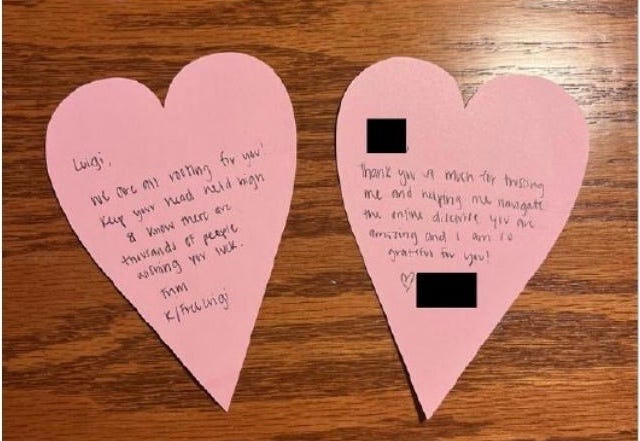 Luigi,
we are all rooting for you!
Keep your head held high
& know there are
thousands of people
wishing you luck.
From
r/FreeLuigi
Thank you so much for trusting
me and helping me navigate
the online discourse you are
amazing and I am so
grateful for you!
♡